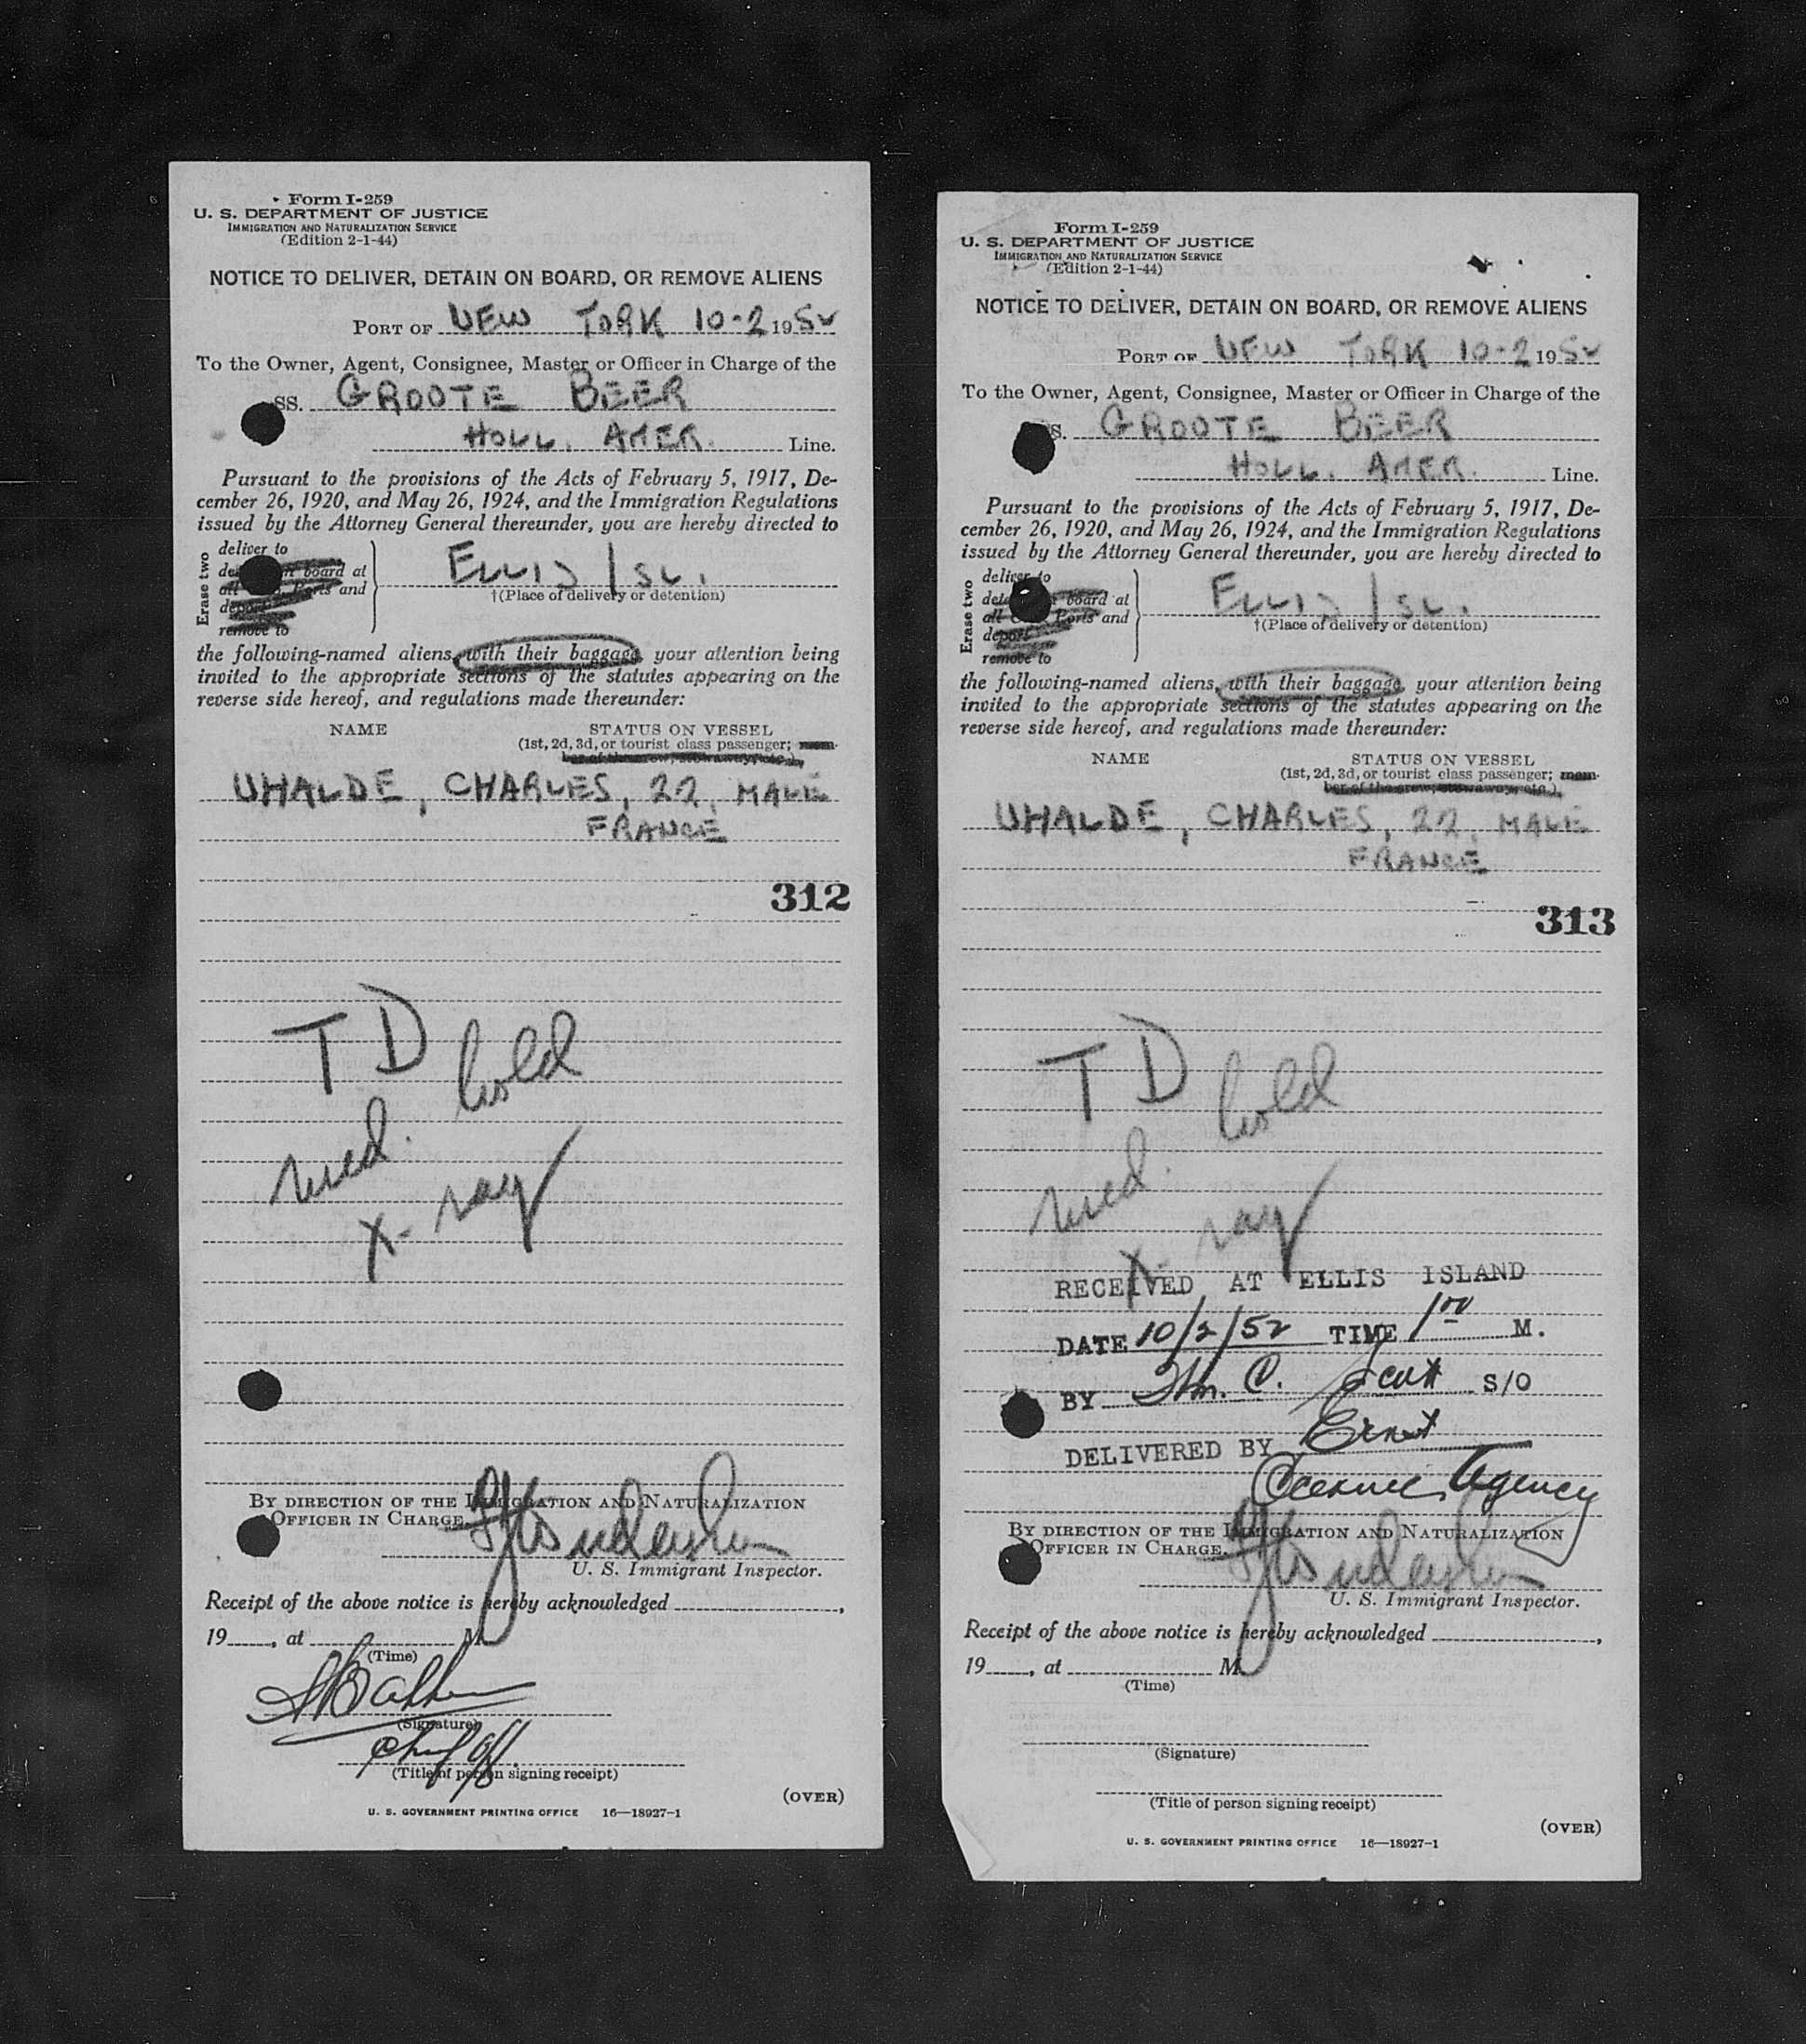 Form I-259
U. S. DEPARTMENT OF JUSTICE
IMMIGRATION AND NATURALIZATION SERVICE
(Edition 2-1-44)
NOTICE TO DELIVER, DETAIN ON BOARD, OR REMOVE ALIENS
PORT OF NEW YORK 10-2 1952
To the Owner, Agent, Consignee, Master or Officer in Charge of the
SS. GROOTE BEER
HOLL. AMER. Line.
Pursuant to the provisions of the Acts of February 5, 1917, De-
cember 26, 1920, and May 26, 1924, and the Immigration Regulations
issued by the Attorney General thereunder, you are hereby directed to
Erase two
deliver to
board at
Ports and
remove to
ELLIS ISL.
†(Place of delivery or detention)
the following-named aliens, with their baggage, your attention being
invited to the appropriate sections of the statutes appearing on the
reverse side hereof, and regulations made thereunder:
NAME STATUS ON VESSEL
(1st, 2d, 3d, or tourist class passenger; mem-
ber of the crew, stowaway, etc.)
UHALDE, CHARLES, 22, MALE
FRANCE
312
TD hold
med.
X-ray
BY DIRECTION OF THE IMMIGRATION AND NATURALIZATION
OFFICER IN CHARGE.
U. S. Immigrant Inspector.
Receipt of the above notice is hereby acknowledged
19, at M.
(Time)
(Signature)
Chief Off.
(Title of person signing receipt)
(OVER)
U. S. GOVERNMENT PRINTING OFFICE 16—18927-1
Form I-259
U. S. DEPARTMENT OF JUSTICE
IMMIGRATION AND NATURALIZATION SERVICE
(Edition 2-1-44)
NOTICE TO DELIVER, DETAIN ON BOARD, OR REMOVE ALIENS
PORT OF NEW YORK 10-2 1952
To the Owner, Agent, Consignee, Master or Officer in Charge of the
SS. GROOTE BEER
HOLL. AMER. Line.
Pursuant to the provisions of the Acts of February 5, 1917, De-
cember 26, 1920, and May 26, 1924, and the Immigration Regulations
issued by the Attorney General thereunder, you are hereby directed to
Erase two
deliver to
board at
all Ports and
remove to
ELLIS ISL.
†(Place of delivery or detention)
the following-named aliens, with their baggage, your attention being
invited to the appropriate sections of the statutes appearing on the
reverse side hereof, and regulations made thereunder:
NAME STATUS ON VESSEL
(1st, 2d, 3d, or tourist class passenger; mem-
ber of the crew, stowaway, etc.)
UHALDE, CHARLES, 22, MALE
FRANCE
313
TD hold
med.
X-ray
RECEIVED AT ELLIS ISLAND
DATE 10/2/52 TIME 1 00 M.
BY Wm. C. Scott S/O
DELIVERED BY Ernst
Agency
BY DIRECTION OF THE IMMIGRATION AND NATURALIZATION
OFFICER IN CHARGE.
U. S. Immigrant Inspector.
Receipt of the above notice is hereby acknowledged
19, at M.
(Time)
(Signature)
(Title of person signing receipt)
(OVER)
U. S. GOVERNMENT PRINTING OFFICE 16—18927-1